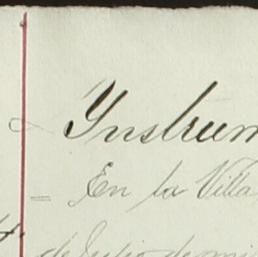 Instrum
En la Villa
de Julio de mil